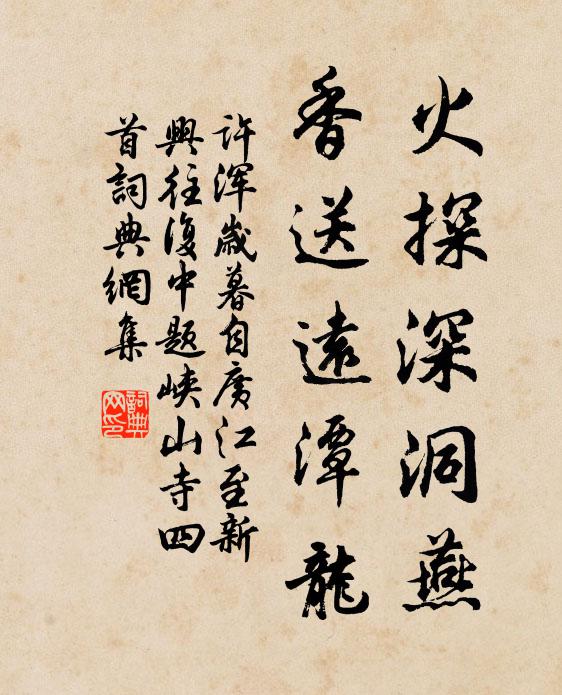 火探深洞燕
香送遠潭龍
許渾歲暮自廣江至新
興往復中題峽山寺四
首詞典網集
詞典
网印